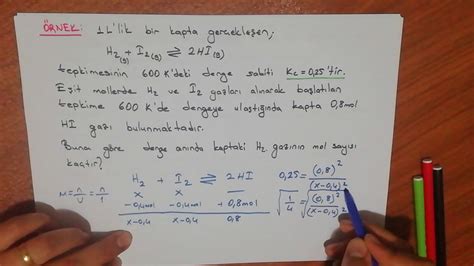 ÖRNEK: 1L'lik bir kapta gerçekleşen;
H₂(g) + I₂(g) ⇌ 2HI(g)
tepkimesinin 600 K'deki denge sabiti Kc = 0,25'tir.
Eşit mollerde H₂ ve I₂ gazları alınarak başlatılan
tepkime 600 K'de dengeye ulaştığında kapta 0,8 mol
HI gazı bulunmaktadır.
Buna göre denge anında kaptaki H₂ gazının mol sayısı
kaçtır?
M = n/V = n/1
H₂ + I₂ ⇌ 2HI
x x —
-0,4mol -0,4mol +0,8mol
x-0,4 x-0,4 0,8
0,25 = (0,8)²/(x-0,4)²
√1/4 = √(0,8)²/(x-0,4)²